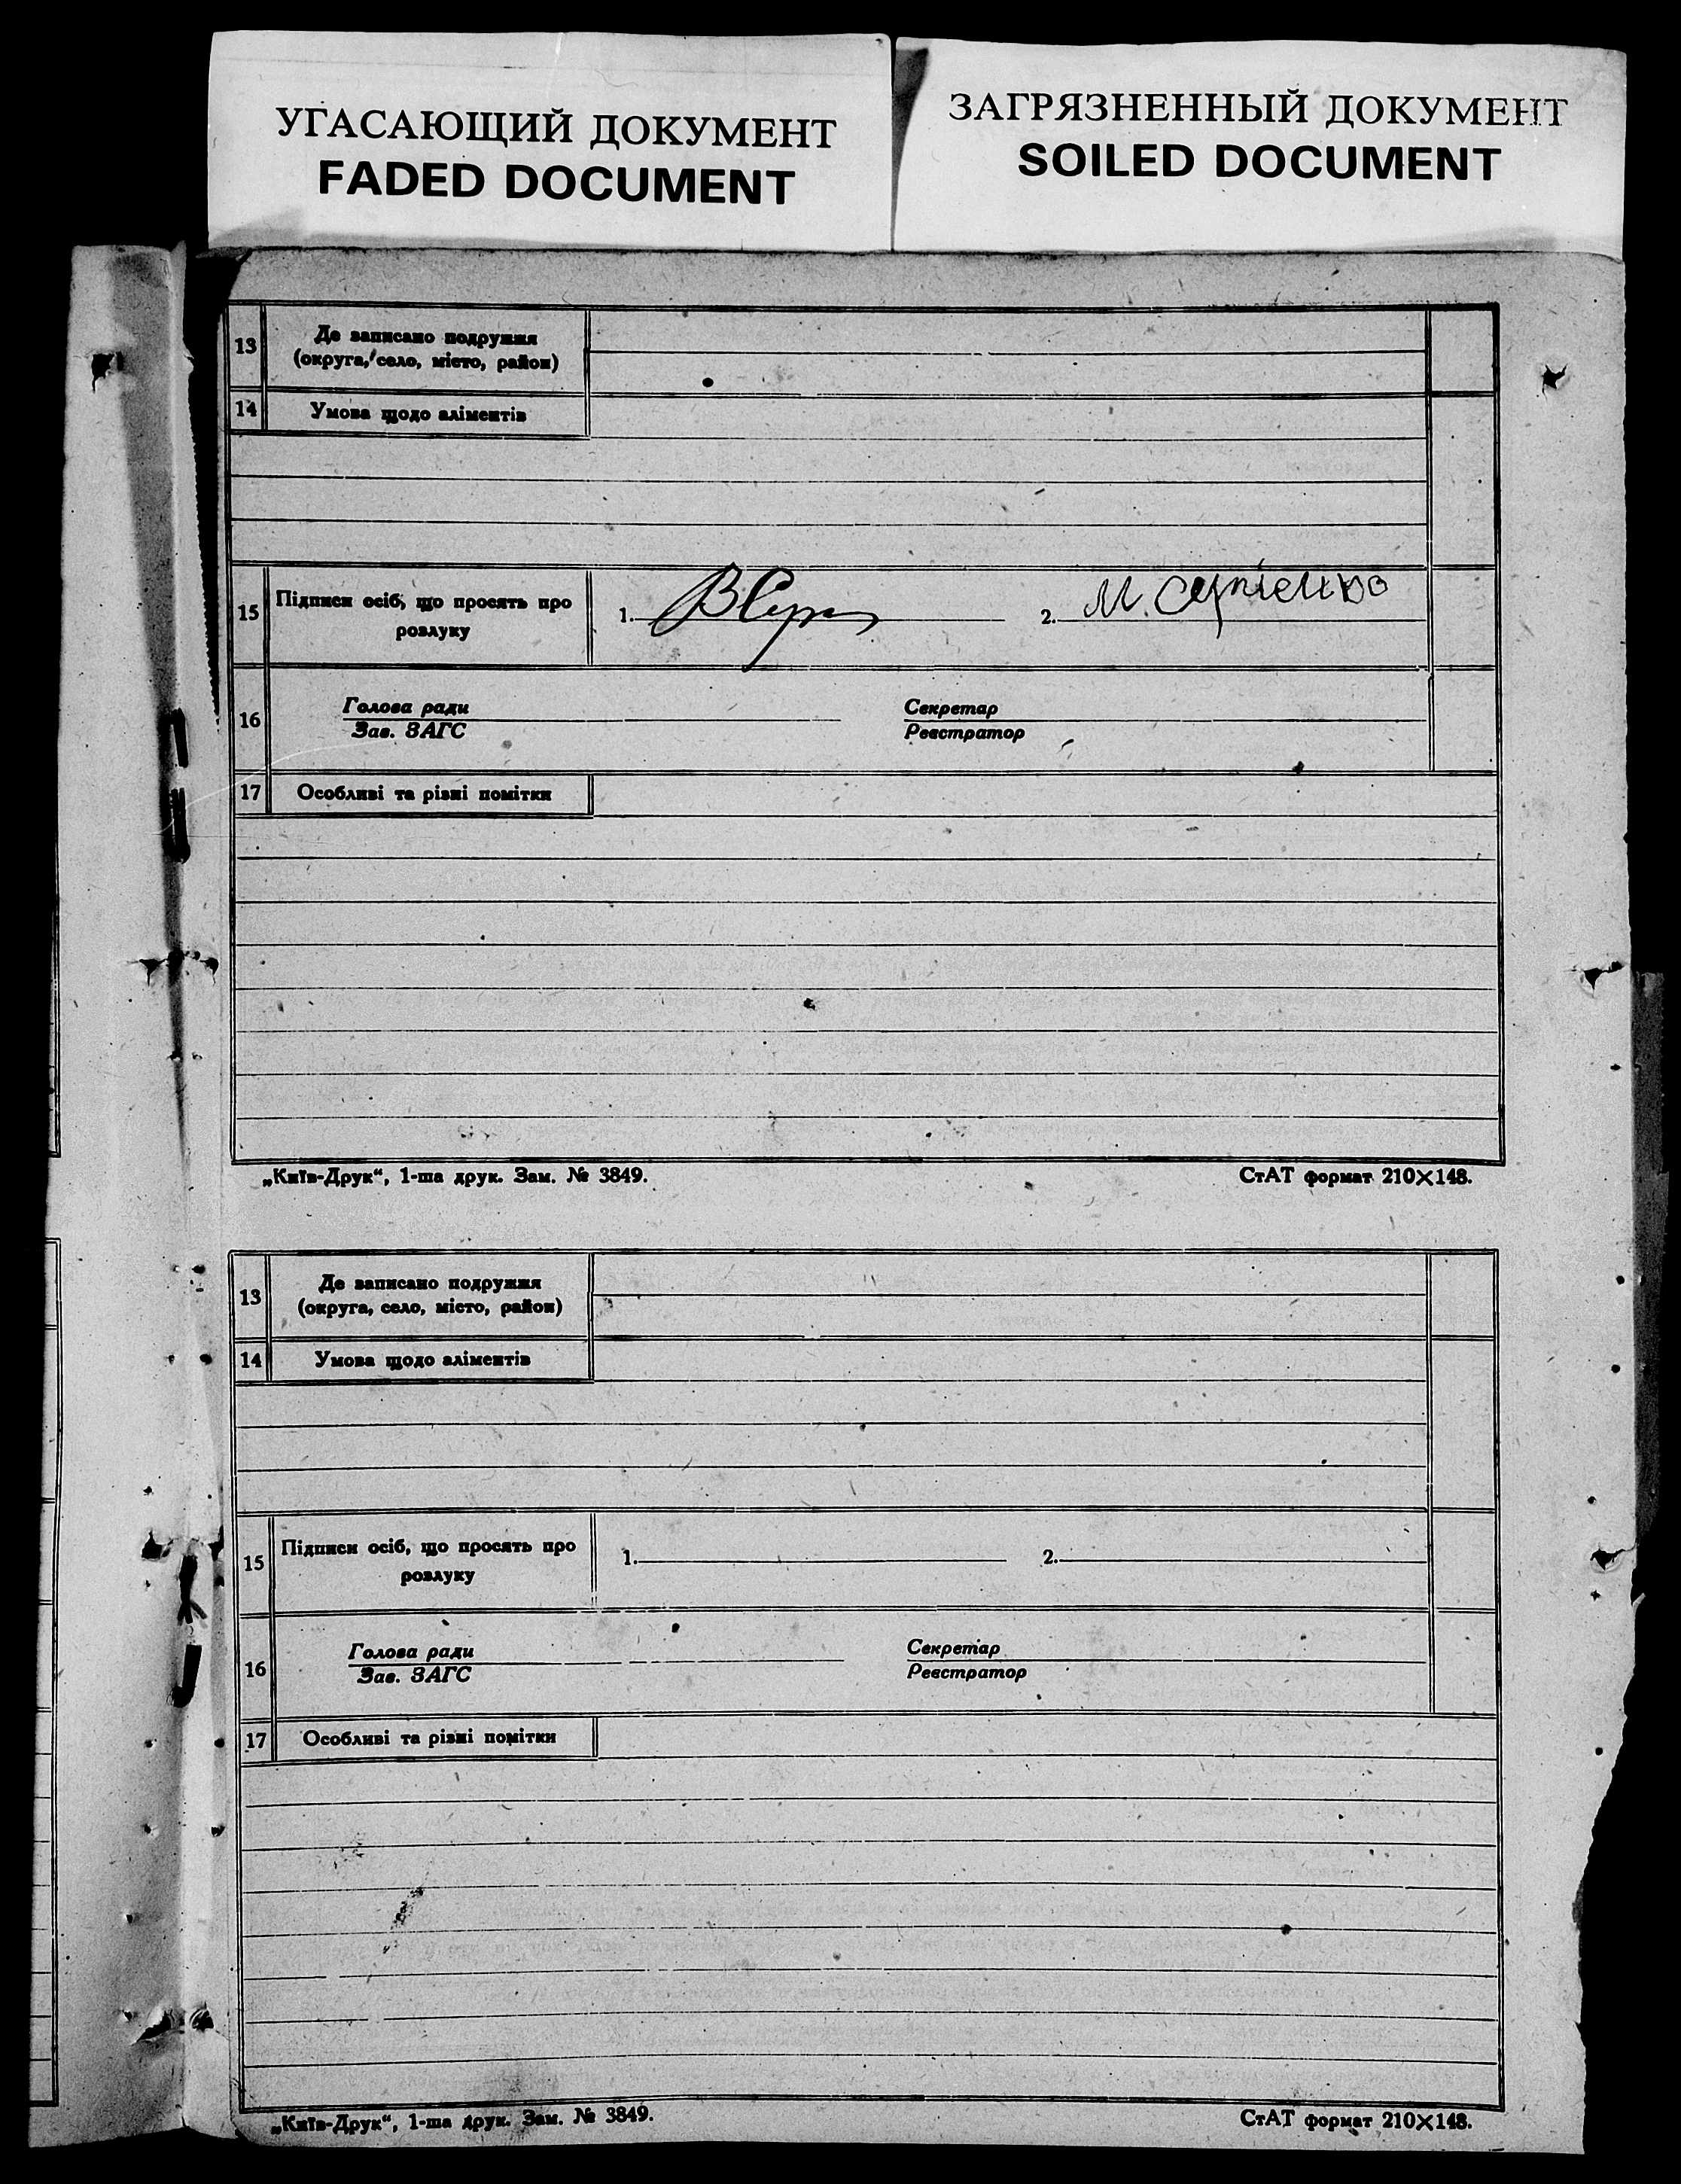 УГАСАЮЩИЙ ДОКУМЕНТ
FADED DOCUMENT
ЗАГРЯЗНЕННЫЙ ДОКУМЕНТ
SOILED DOCUMENT
13 Де записано подружжя
(округа, село, місто, район)
14 Умова щодо аліментів
15 Підписи осіб, що просять про
розлуку
1. 2. М.
16 Голова ради Секретар
Зав. ЗАГС Реєстратор
17 Особливі та різні помітки
„Київ-Друк“, 1-ша друк. Зам. № 3849. СтАТ формат 210×148.
13 Де записано подружжя
(округа, село, місто, район)
14 Умова щодо аліментів
15 Підписи осіб, що просять про
розлуку
1. 2.
16 Голова ради Секретар
Зав. ЗАГС Реєстратор
17 Особливі та різні помітки
„Київ-Друк“, 1-ша друк. Зам. № 3849. СтАТ формат 210×148.